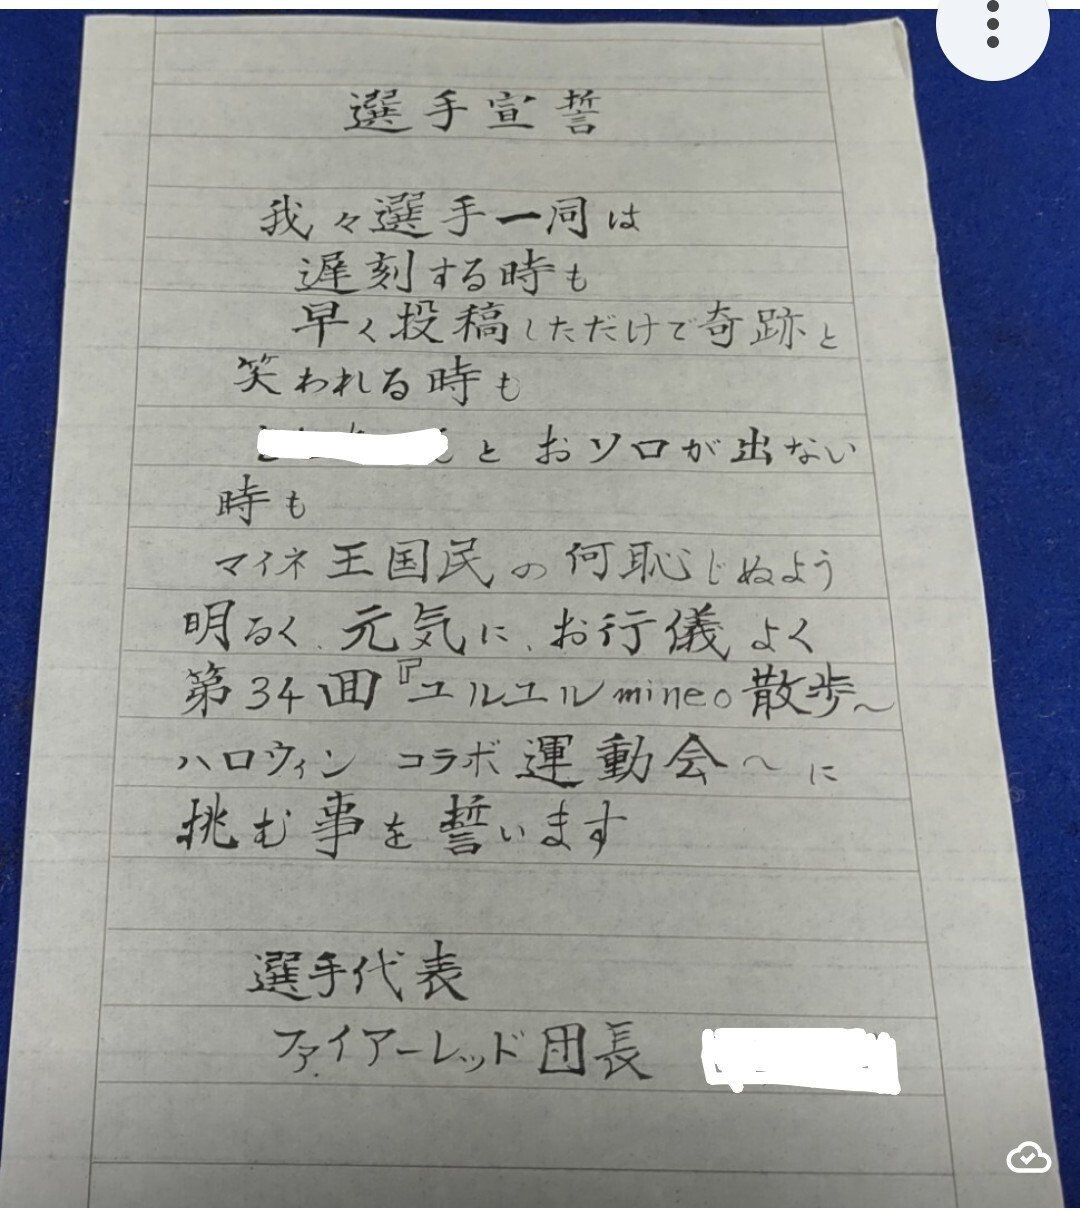 選手宣誓
我々選手一同は
遅刻する時も
早く投稿しただけで奇跡と
笑われる時も
とおソロが出ない
時も
マイネ王国民の何恥じぬよう
明るく、元気に、お行儀よく
第34回『ユルユルmineo散歩~
ハロウィンコラボ運動会~に
挑む事を誓います
選手代表
ファイアーレッド団長